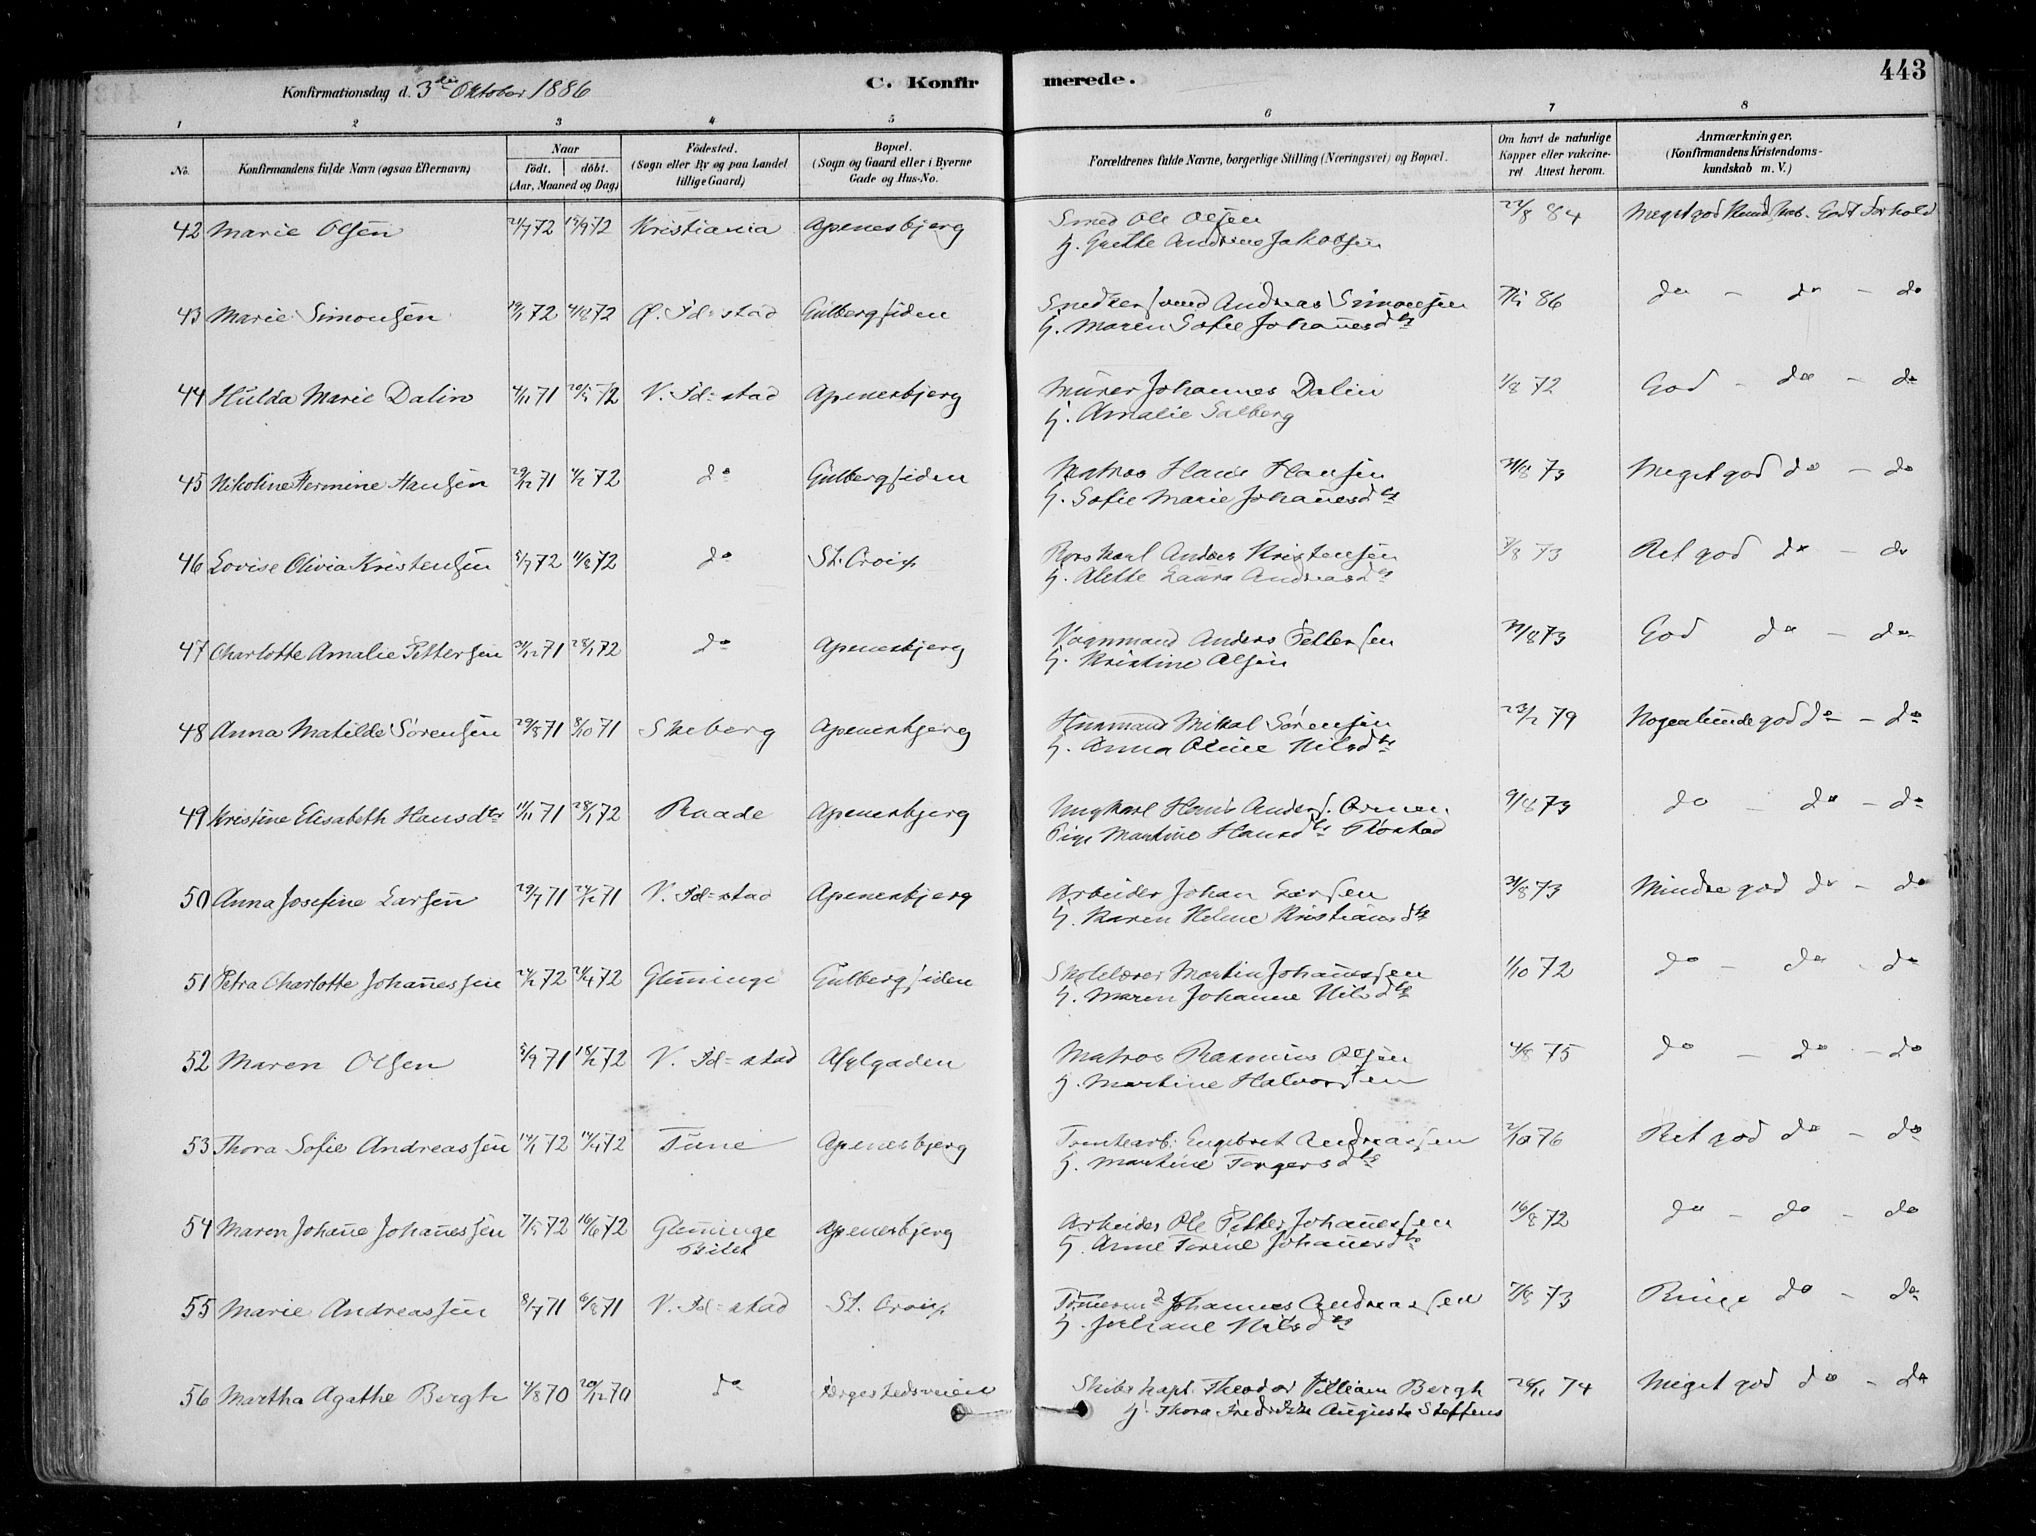 443
Konfirmationsdag d. 3die Oktober 1886 C. Konfirmerede.
1 2 3 4 5 6 7 8
No. Konfirmandens fulde Navn (ogsaa Efternavn) Naar födt. döbt. (Aar, Maaned og Dag) Födested. (Sogn eller By og paa Landet tillige Gaard) Bopæl. (Sogn og Gaard eller i Byerne Gade og Hus-No. Forældrenes fulde Navne, borgerlige Stilling (Næringsvei) og Bopæl. Om havt de naturlige Kopper eller vakcineret Attest herom. Anmærkninger. (Konfirmandens Kristendomskundskab m. V.)
42 Marie Olsen 21/7 72 15/9 72 Kristiania Apenesbjerg Smed Ole Olsen 22/8 84 Meget god Kundskab. Godt Forhold
H. Grethe Andrine Jakobsen
43 Marie Simonsen 72 4/8 72 Ø. Fd=stad Gulbergsiden Snedkersvend Andreas Simonsen 86 do - do - do
H. Maren Sofie Johañesdtr
44 Hulda Marie Dalin 4/11 71 20/5 72 V. Fd=stad Apenesbjerg Murer Johannes Dalin 1/8 72 God - do - do
H. Amalie Salberg
45 Nikoline Hermine Hansen 29/12 71 4/2 72 do Gulbergsiden Matros Hans Hansen 31/8 73 Meget god do - do
H. Sofie Marie Johañesdtr
46 Lovise Olivia Kristensen 5/7 72 11/8 72 do St. Croix Anders Kristensen 7/8 73 Ret god do - do
H. Alette Laura Andreasdtr
47 Charlotte Amalie Pettersen 31/12 71 28/1 72 do Apenesbjerg Vognmand Anders Pettersen 21/8 73 God do - do
H. Kristine Olsen
48 Anna Matilde Sørensen 29/8 71 8/10 71 Skeberg Apenesbjerg Husmand Mikal Sørensen 23/2 79 Nogenlunde god do - do
H. Anna Oline Nilsdtr
49 Kristine Elisabeth Hansdtr 11/11 71 28/1 72 Raade Apenesbjerg Ungkarl Hans Anders. 9/8 73 do - do - do
Pige Martine Hansdtr
50 Anna Josefine Larsen 29/7 71 71 V. Fd=stad Apenesbjerg Arbeider Johan Larsen 31/8 73 Mindre god do - do
H. Maren Helene Kristiansdtr
51 Petra Charlotte Johañessen 72 21/4 72 Glemminge Gulbergsiden Skolelærer Martin Johañessen 1/10 72 do - do - do
H. Maren Johanne Nilsdtr
52 Maren Olsen 5/9 71 72 V. Fd=stad Asylgaden Matros Rasmus Olsen 4/8 75 do - do - do
H. Martine Halvorsen
53 Thora Sofie Andreassen 14/1 72 14/4 72 Tune Apenesbjerg Tomtearb. Engebret Andreassen 2/10 76 Ret god do - do
H. Martine Torgersdtr
54 Maren Johañe Johañessen 7/5 72 16/6 72 Glemminge Apenesbjerg Arbeider Ole Petter Johañessen 16/8 72 do - do - do
H. Anne Torine Johañesdtr
55 Marie Andreassen 8/7 71 6/8 71 V. Fd=stad St. Croix Tømmermd Johannes Andreassen 7/8 73 Ringe do - do
H. Juliane Nilsdtr
56 Martha Agathe Bergh 4/8 70 20/12 70 do Færgestedsveien Skibskapt. Theodor Villiam Bergh 26/11 74 Meget god do - do
H. Thora Fredrikke Augusta Steffens